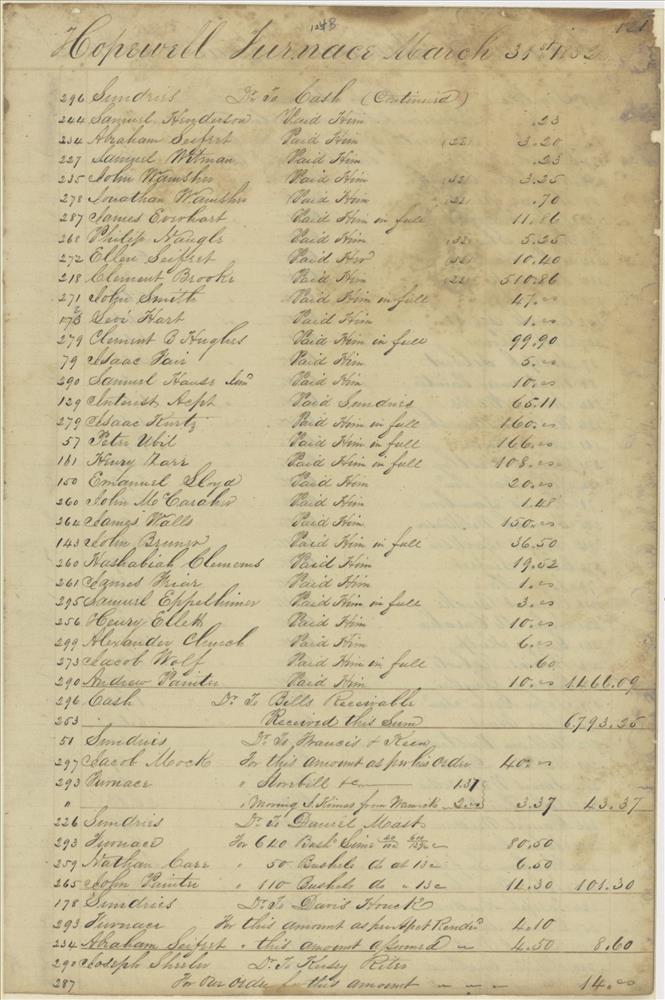 1248
121
Hopewell Furnace March 31st 1832
296 Sundries Dr. To Cash (Continued)
244 Samuel Henderson Paid Him .23
234 Abraham Seifert Paid Him (22) 3.20
227 Samuel Witman Paid Him .23
235 John Wamsher Paid Him (32) 3.25
278 Jonathan Wamsher Paid Him (22) .70
287 James Everhart Paid Him in full 11.86
268 Philip Naugle Paid Him (32) 5.25
272 Ellen Seifret Paid Her (32) 10.40
218 Clement Brooke Paid Him (22) 510.86
271 John Smith Paid Him in full 47.00
173 Levi Hart Paid Him 1.00
279 Clement B Hughes Paid Him in full 99.90
79 Isaac Fair Paid Him 5.00
290 Samuel Hause Paid Him 10.00
129 Interest Acpt Paid Sundries 65.11
279 Isaac Kurtz Paid Him in full 160.00
57 Peter Ubil Paid Him in full 166.00
181 Henry Zarr Paid Him in full 108.00
150 Emanuel Lloyd Paid Him 20.00
260 John McCaraher Paid Him 1.48
264 James Walls Paid Him 150.00
143 John Bruner Paid Him in full 36.50
260 Hashabiah Clemens Paid Him 19.52
261 James Friar Paid Him 1.00
295 Samuel Eppelhimer Paid Him in full 3.00
256 Henry Ellett Paid Him 10.00
299 Alexander Church Paid Him 6.00
273 Jacob Wolf Paid Him in full .60
290 Andrew Painter Paid Him 10.00 1466.09
296 Cash Dr. To Bills Receivable
253 Received this Sum 6793.25
51 Sundries Dr. To Francis & Keen
297 Jacob Mock For this amount as per his Order 40.00
293 Furnace " Storebill &c 1.37
" " Moving S. Himes from Warwick 2.00 3.37 43.37
226 Sundries Dr. To Daniel Mast
293 Furnace For 640 Bush. Lime 80.50
259 Nathan Carr " 50 Bushels do at 13c 6.50
265 John Painter " 110 Bushels do " 13c 14.30 101.30
178 Sundries Dr. To Davis Houck
293 Furnace For this amount as per Acpt Rendd 4.10
234 Abraham Seifert " this amount assumed 4.50 8.60
290 Joseph Shreler Dr. To Kersey Rites
287 For Our Order for this amount 14.00